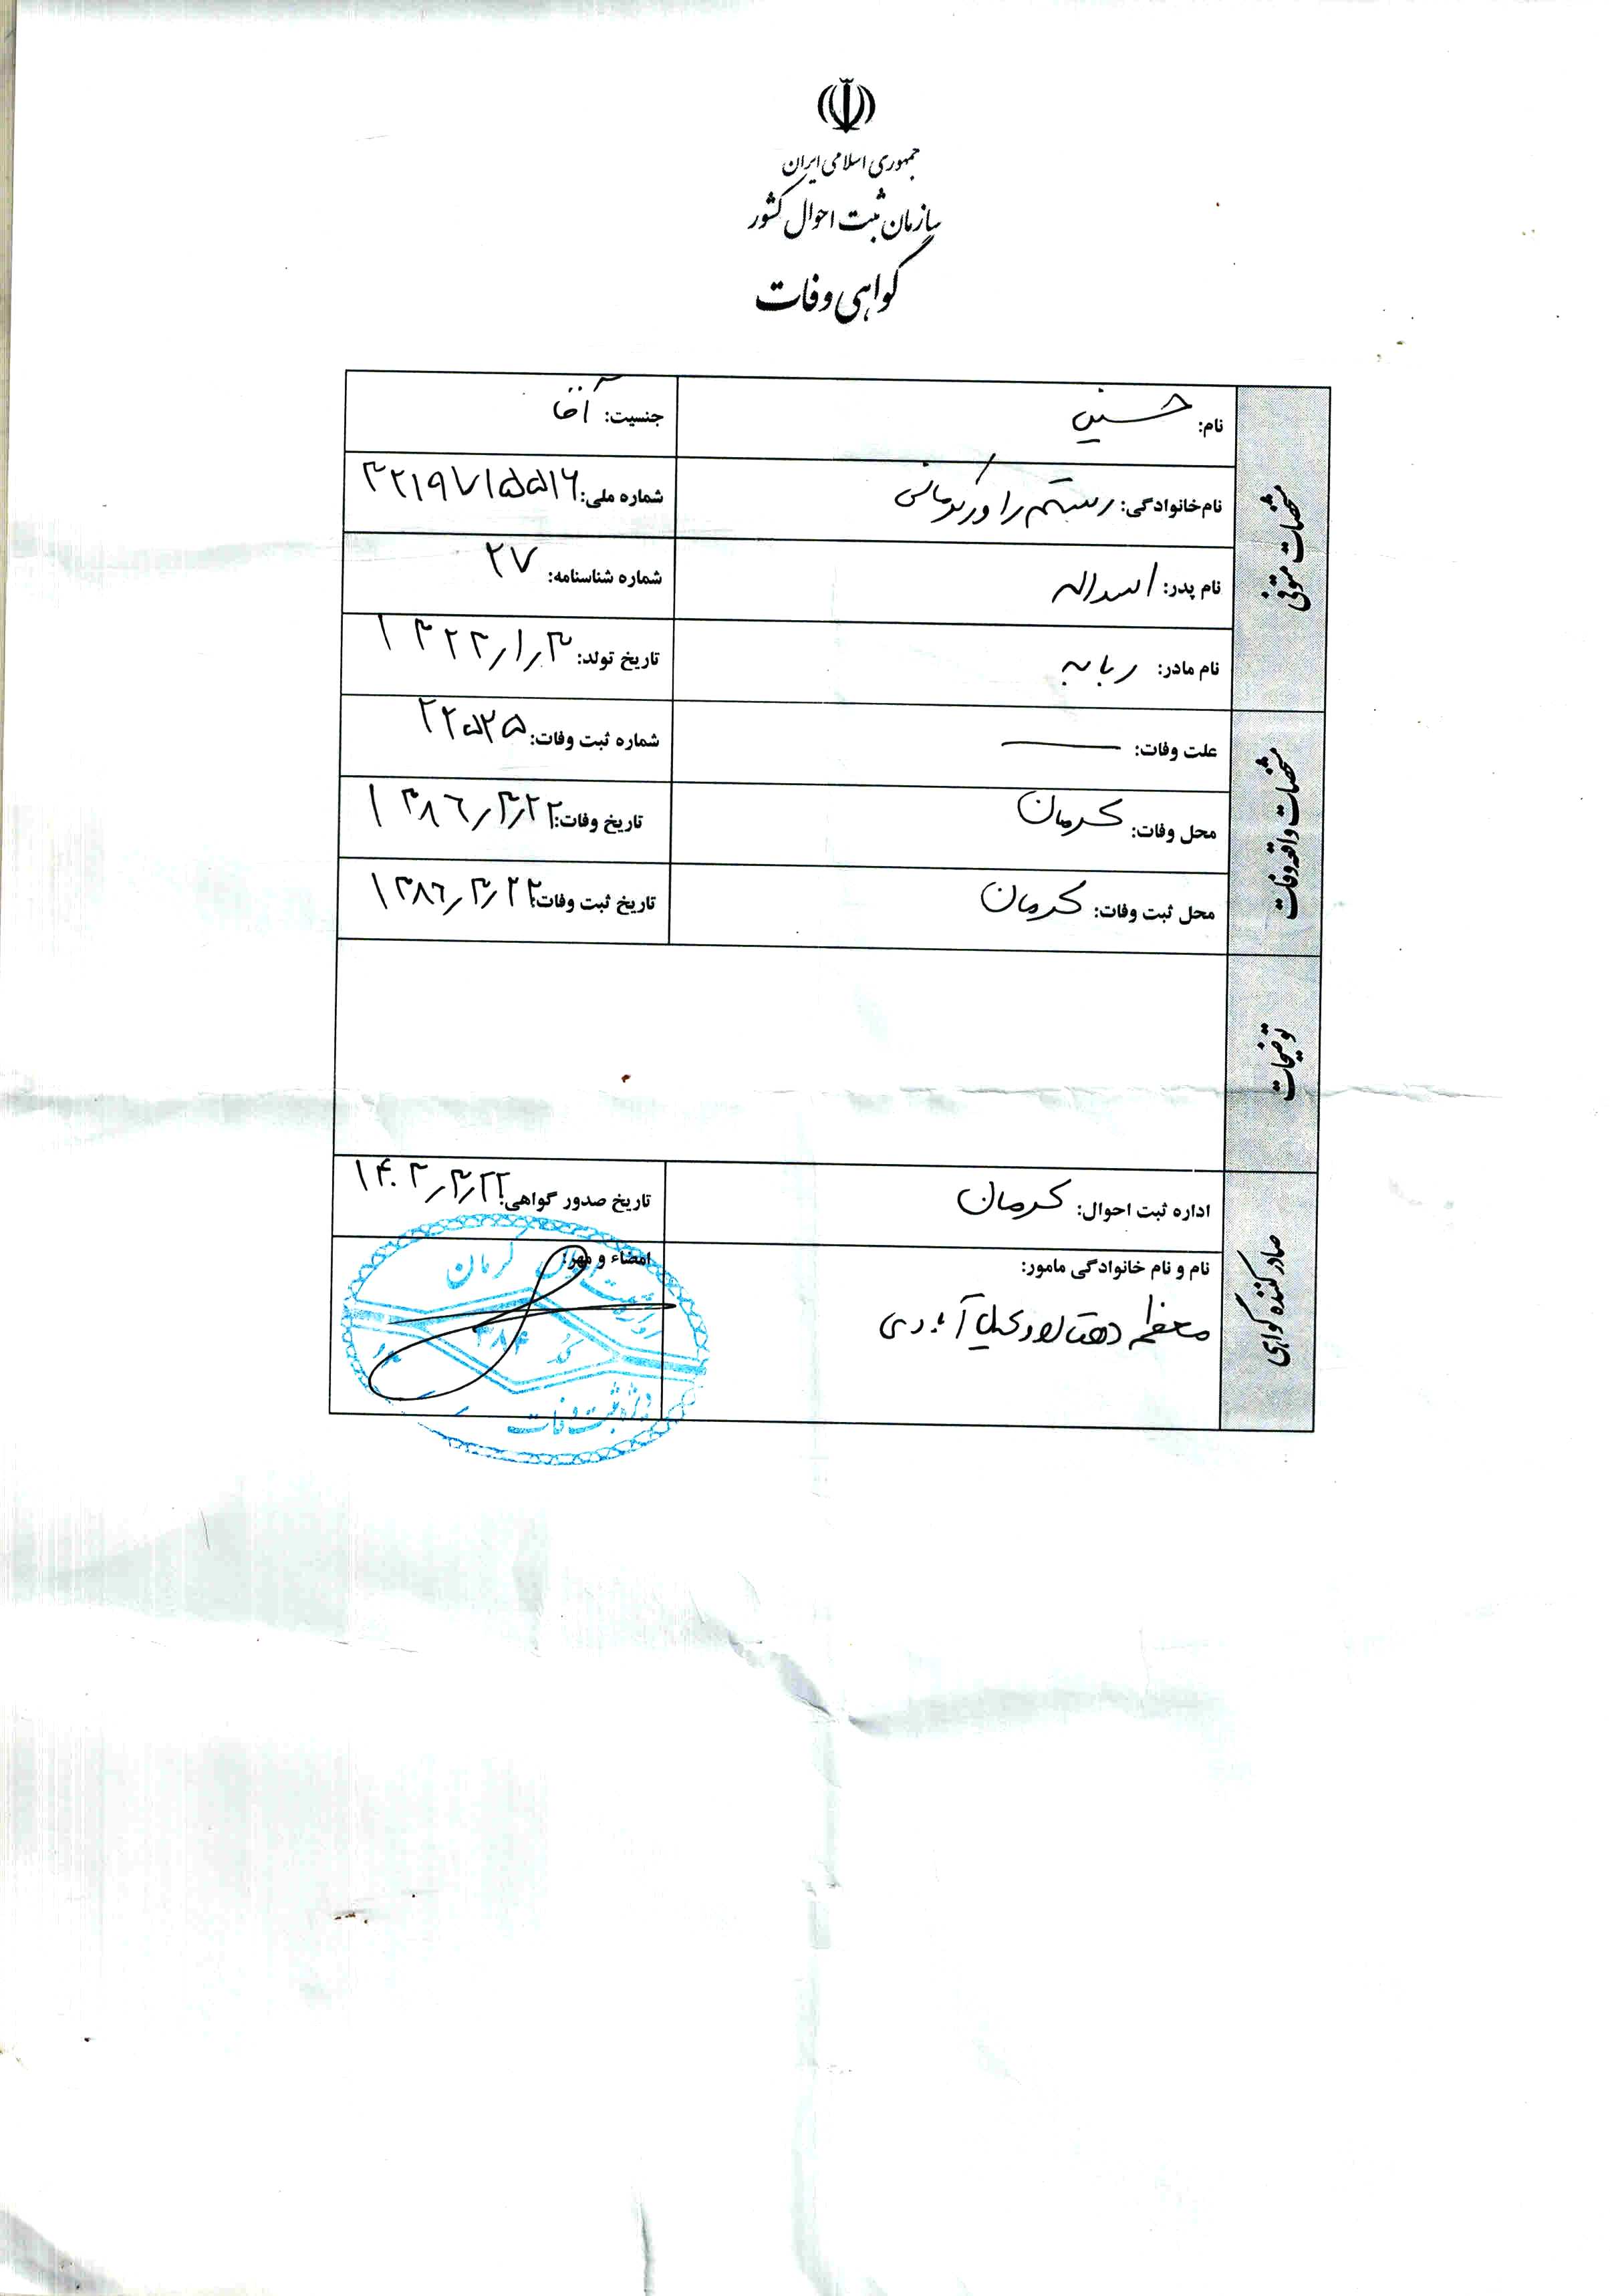 جمهوری اسلامی ایران
سازمان ثبت احوال کشور
گواهی وفات
مشخصات متوفی
نام: حسین
جنسیت: آقا
نام خانوادگی: رستم راور کرمانی
شماره ملی: ۳۲۱۹۷۱۵۵۱۶
نام پدر: اسداله
شماره شناسنامه: ۲۷
نام مادر: ربابه
تاریخ تولد: ۱۳۲۲/۱/۳
مشخصات واقعه وفات
علت وفات: —
شماره ثبت وفات: ۲۲۵۲۵
محل وفات: کرمان
تاریخ وفات: ۱۳۸۶/۳/۲۲
محل ثبت وفات: کرمان
تاریخ ثبت وفات: ۱۳۸۶/۳/۲۲
توضیحات
صادر کننده گواهی
اداره ثبت احوال: کرمان
تاریخ صدور گواهی: ۱۴۰۲/۳/۲۲
نام و نام خانوادگی مامور:
امضاء و مهر:
معظم
کرمان
کد ۳۸۴
ویژه ثبت وفات